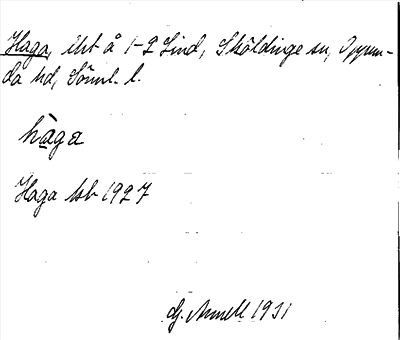 Haga, lht å 1-2 Lind, Sköldinge sn, Oppun-
da hd, Söml. l.
hàga
Haga lsb 1927
G. Annell 1931